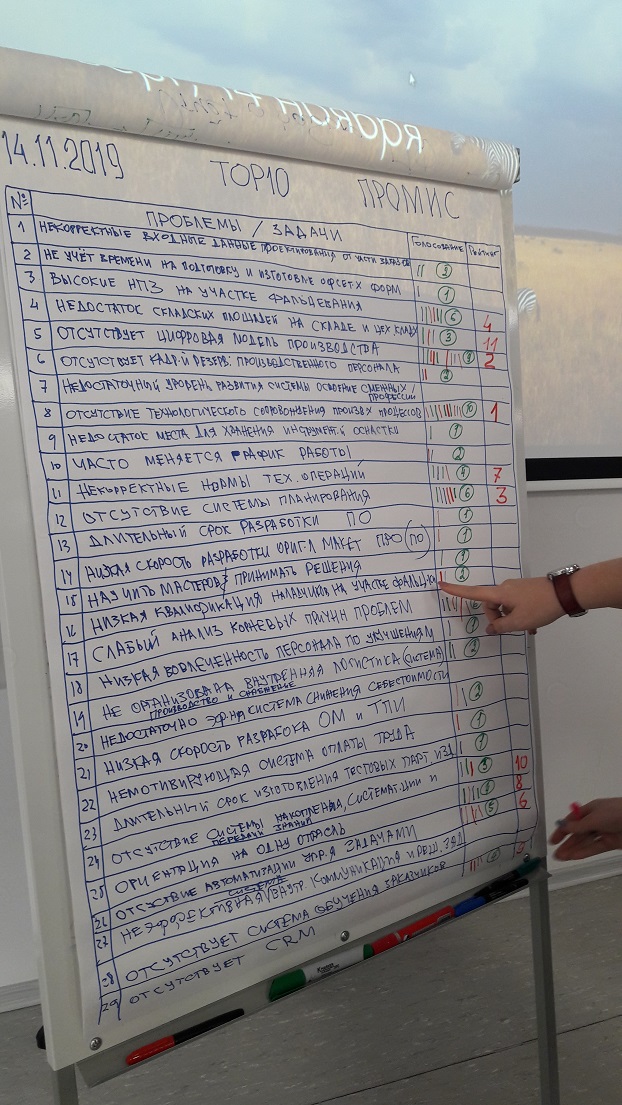 14 ноября
14.11.2019 TOP10 ПРОМИС
№ ПРОБЛЕМЫ / ЗАДАЧИ ГОЛОСОВАНИЕ РЕЙТИНГ
1 НЕКОРРЕКТНЫЕ ВХОДНЫЕ ДАННЫЕ ПРОЕКТИРОВАНИЯ ОТ ЧАСТИ ЗАКАЗОВ 2
2 НЕ УЧЁТ ВРЕМЕНИ НА ПОДГОТОВКУ И ИЗГОТОВЛЕ ОФСЕТХ ФОРМ 1
3 ВЫСОКИЕ НПЗ НА УЧАСТКЕ ФАЛЬЦЕВАНИЯ 6 4
4 НЕДОСТАТОК СКЛАДСКИХ ПЛОЩАДЕЙ НА СКЛАДЕ И ЦЕХ. КЛАДХ 3 11
5 ОТСУТСТВУЕТ ЦИФРОВАЯ МОДЕЛЬ ПРОИЗВОДСТВА 2
6 ОТСУТСТВУЕТ КАДР-Й РЕЗЕРВ: ПРОИЗВОДСТВЕННОГО ПЕРСОНАЛА 2
7 НЕДОСТАТОЧНЫЙ УРОВЕНЬ РАЗВИТИЯ СИСТЕМЫ ОСВОЕНИЕ СМЕЖНЫХ / ПРОФЕССИЙ
8 ОТСУТСТВИЕ ТЕХНОЛОГИЧЕСКОГО СОПРОВОЖДЕНИЯ ПРОИЗВХ ПРОЦЕССОВ 10 1
9 НЕДОСТАТОК МЕСТА ДЛЯ ХРАНЕНИЯ ИНСТРУМЕНТ.Й ОСНАСТКИ 1
10 ЧАСТО МЕНЯЕТСЯ ГРАФИК РАБОТЫ 2
11 НЕКОРРЕКТНЫЕ НОРМЫ ТЕХ. ОПЕРАЦИЙ 7
12 ОТСУТСТВИЕ СИСТЕМЫ ПЛАНИРОВАНИЯ 6 3
13 ДЛИТЕЛЬНЫЙ СРОК РАЗРАБОТКИ ПО 1
14 НИЗКАЯ СКОРОСТЬ РАЗРАБОТКИ ОРИГЛ МАКЕТ ПРО (ПО) 1
15 НАУЧИТЬ МАСТЕРОВ ПРИНИМАТЬ РЕШЕНИЯ
16 НИЗКАЯ КВАЛИФИКАЦИЯ НАЛАДЧИКОВ НА УЧАСТКЕ ФАЛЬЦ 2
17 СЛАБЫЙ АНАЛИЗ КОРНЕВЫХ ПРИЧИН ПРОБЛЕМ
18 НИЗКАЯ ВОВЛЕЧЕННОСТЬ ПЕРСОНАЛА ПО УЛУЧШЕНИЯМ
19 НЕ ОРГАНИЗОВАНА ВНУТРЕННЯЯ ЛОГИСТИКА (СИСТЕМА) 2
ПРОИЗВОДСТВО И СНАБЖЕНИЕ
20 НЕДОСТАТОЧНО ЭФ-НА СИСТЕМА СНИЖЕНИЯ СЕБЕСТОИМОСТИ
21 НИЗКАЯ СКОРОСТЬ РАЗРАБОКА ОМ И ТПИ 2
22 НЕМОТИВИРУЮЩАЯ СИСТЕМА ОПЛАТЫ ТРУДА 1
23 ДЛИТЕЛЬНЫЙ СРОК ИЗГОТОВЛЕНИЯ ТЕСТОВЫХ ПАРТ. ИЗД 1
24 ОТСУТСТВИЕ СИСТЕМЫ НАКОПЛЕНИЯ, СИСТЕМАТ.ЦИИ И 3 10
ПЕРЕДАЧИ ЗНАНИЙ
25 ОРИЕНТАЦИЯ НА ОДНУ ОТРАСЛЬ 8
26 ОТСУТСТВИЕ АВТОМАТИЗАЦИИ УПР.Я ЗАДАЧАМИ 5 6
27 НЕЭФФЕКТИВНАЯ ВНУТР. КОММУНИКАЦИЯ И РЕШ. ЗАД
СИСТЕМА
28 ОТСУТСТВУЕТ СИСТЕМА ОБУЧЕНИЯ ЗАКАЗЧИКОВ
29 ОТСУТСТВУЕТ CRM